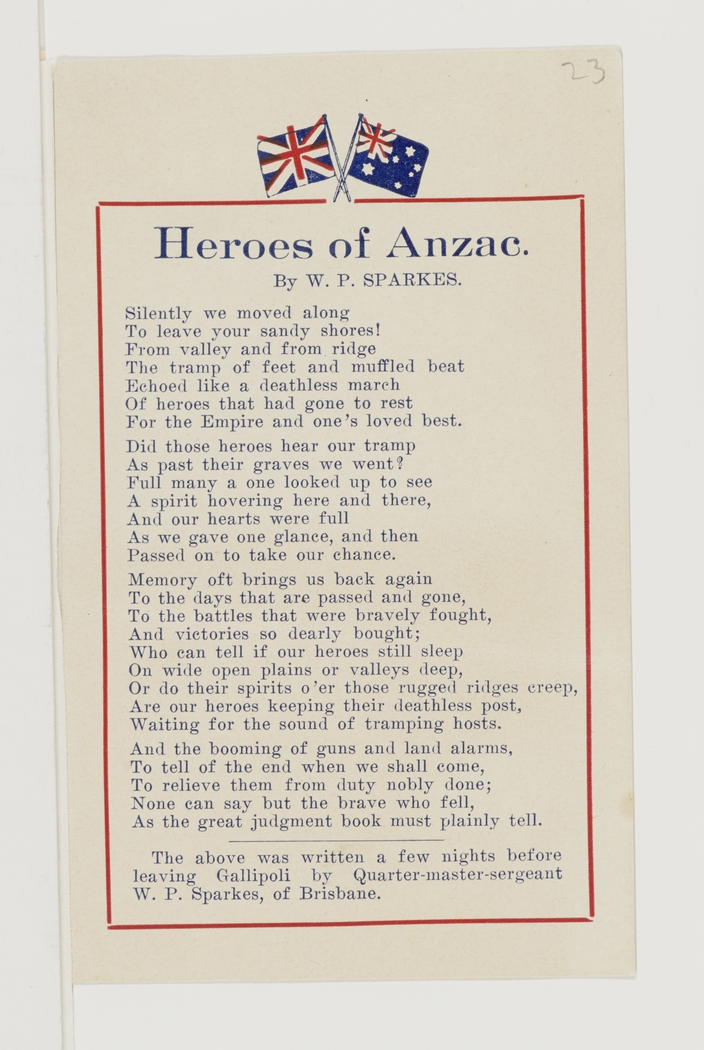 23
Heroes of Anzac.
By W. P. SPARKES.
Silently we moved along
To leave your sandy shores!
From valley and from ridge
The tramp of feet and muffled beat
Echoed like a deathless march
Of heroes that had gone to rest
For the Empire and one's loved best.
Did those heroes hear our tramp
As past their graves we went?
Full many a one looked up to see
A spirit hovering here and there,
And our hearts were full
As we gave one glance, and then
Passed on to take our chance.
Memory oft brings us back again
To the days that are passed and gone,
To the battles that were bravely fought,
And victories so dearly bought;
Who can tell if our heroes still sleep
On wide open plains or valleys deep,
Or do their spirits o'er those rugged ridges creep,
Are our heroes keeping their deathless post,
Waiting for the sound of tramping hosts.
And the booming of guns and land alarms,
To tell of the end when we shall come,
To relieve them from duty nobly done;
None can say but the brave who fell,
As the great judgment book must plainly tell.
The above was written a few nights before
leaving Gallipoli by Quarter-master-sergeant
W. P. Sparkes, of Brisbane.